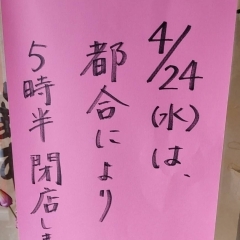 4/24(水)は、
都合により
5時半閉店しま